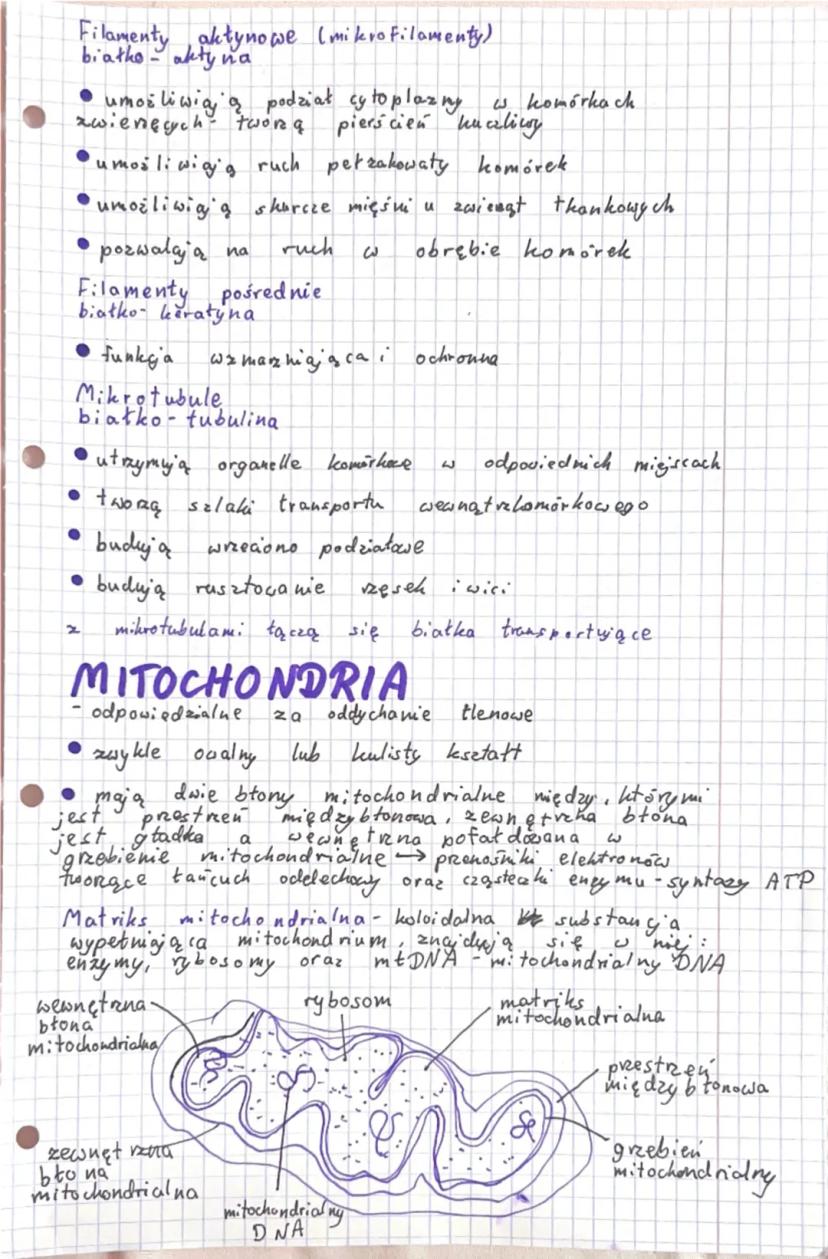 Filamenty aktynowe (mikrofilamenty)
białko - aktyna
• umożliwiają podział cytoplazmy w komórkach
zwierzęcych - tworzą pierścień kurczliwy
• umożliwiają ruch pełzakowaty komórek
• umożliwiają skurcze mięśni u zwierząt tkankowych
• pozwalają na ruch w obrębie komórek
Filamenty pośrednie
białko - keratyna
• funkcja wzmacniająca i ochronna
Mikrotubule
białko - tubulina
• utrzymują organelle komórkowe w odpowiednich miejscach
• tworzą szlaki transportu wewnątrzkomórkowego
• budują wrzeciono podziałowe
• budują rusztowanie rzęsek i wici
z mikrotubulami łączą się białka transportujące
MITOCHONDRIA
- odpowiedzialne za oddychanie tlenowe
• zwykle owalny lub kulisty kształt
• mają dwie błony mitochondrialne między, którymi
jest przestrzeń międzybłonowa, zewnętrzna błona
jest gładka a wewnętrzna pofałdowana w
grzebienie mitochondrialne → przenośniki elektronów
tworzące łańcuch oddechowy oraz cząsteczki enzymu - syntazy ATP
Matriks mitochondrialna - koloidalna substancja
wypełniająca mitochondrium, znajdują się w niej:
enzymy, rybosomy oraz mtDNA - mitochondrialny DNA
wewnętrzna
błona
mitochondrialna
rybosom
matriks
mitochondrialna
przestrzeń
międzybłonowa
grzebień
mitochondrialny
zewnętrzna
błona
mitochondrialna
mitochondrialny
DNA